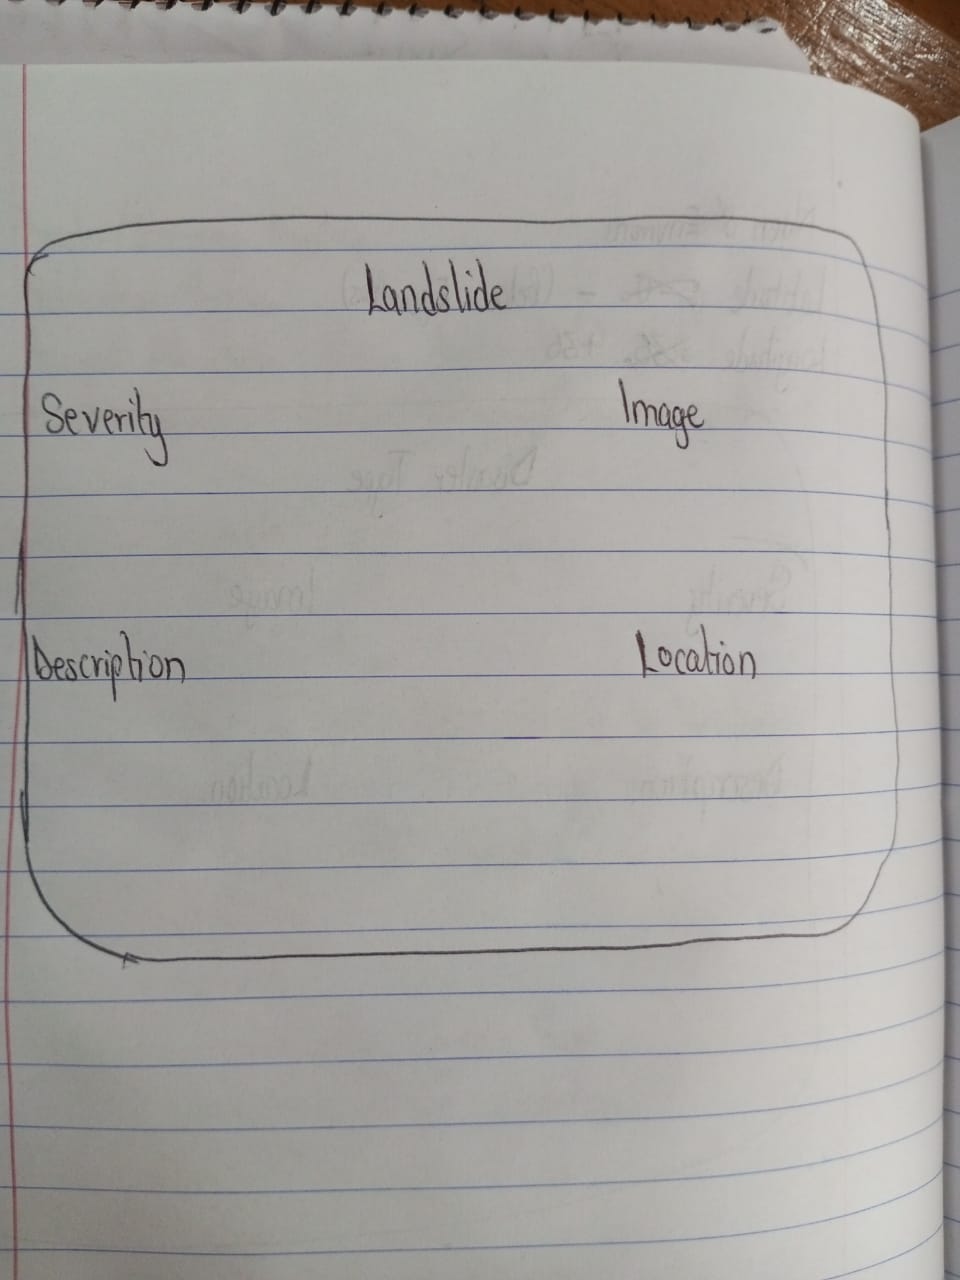 Landslide
Severity Image
Description Location